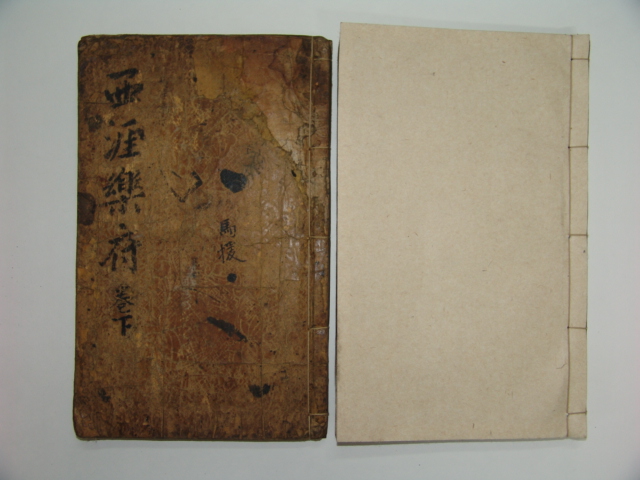 西涯樂府
卷下
馬援